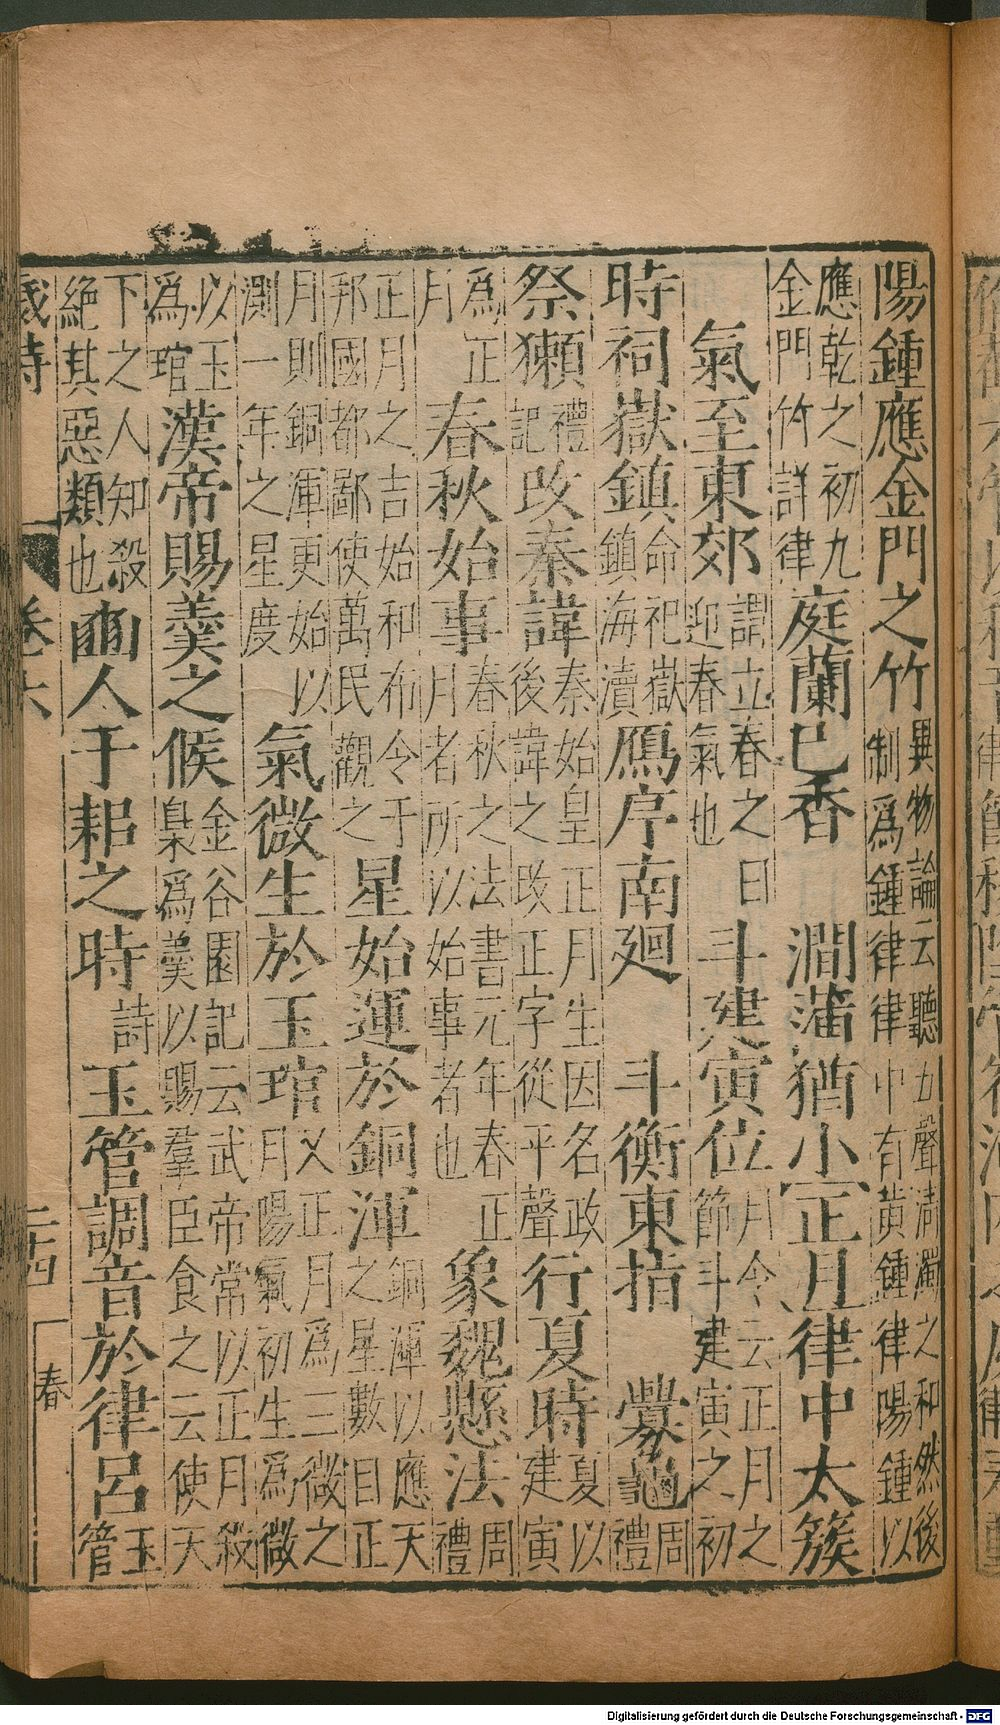 陽鍾應金門之竹異物論云聽五聲清濁之和然後制爲鍾律律中有黃鍾律陽鍾以
應乾之初九金門竹詳律庭蘭巳香 澗蒲猶小 正月 律中太簇
氣至東郊謂立春之日迎春氣也 斗建寅位月令云正月之節斗建寅之初
時祠嶽鎮命祀嶽鎮海瀆 鴈序南廻 斗衡東指 釁龜周禮
祭獺禮記 改秦諱秦始皇正月生因名政後諱之改正字從平聲 行夏時夏以建寅
爲正月 春秋始事春秋之法書元年春正月者所以始事者也 象魏懸法周禮
正月之吉始和布令于邦國都鄙使萬民觀之 星始運於銅渾銅渾以應天之星數目正
月則銅渾更始以測一年之星度 氣微生於玉琯又正月爲三微之月陽氣初生爲微
以玉爲琯 漢帝賜羹之候金谷園記云武帝常以正月殺梟爲羹以賜羣臣食之云使天
下之人知殺絕其惡類也 豳人于耜之時詩 玉管調音於律呂玉管
歲時 卷六 二十四 春
Digitalisierung gefördert durch die Deutsche Forschungsgemeinschaft - DFG